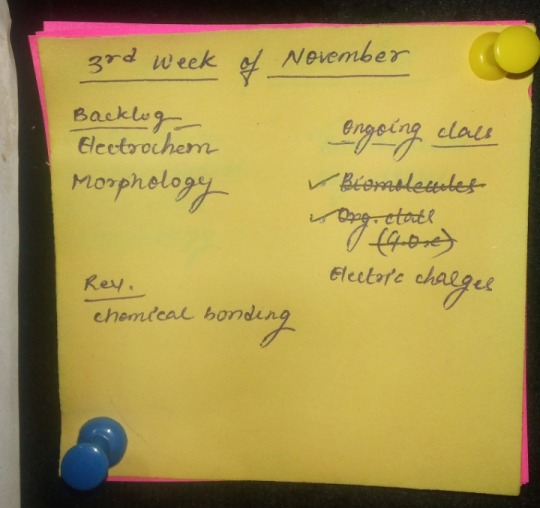 3rd Week of November
Backlog
Electrochem
Morphology
Ongoing class
Biomolecules
Org. class
(G.O.C)
Electric charges
Rev.
chemical bonding